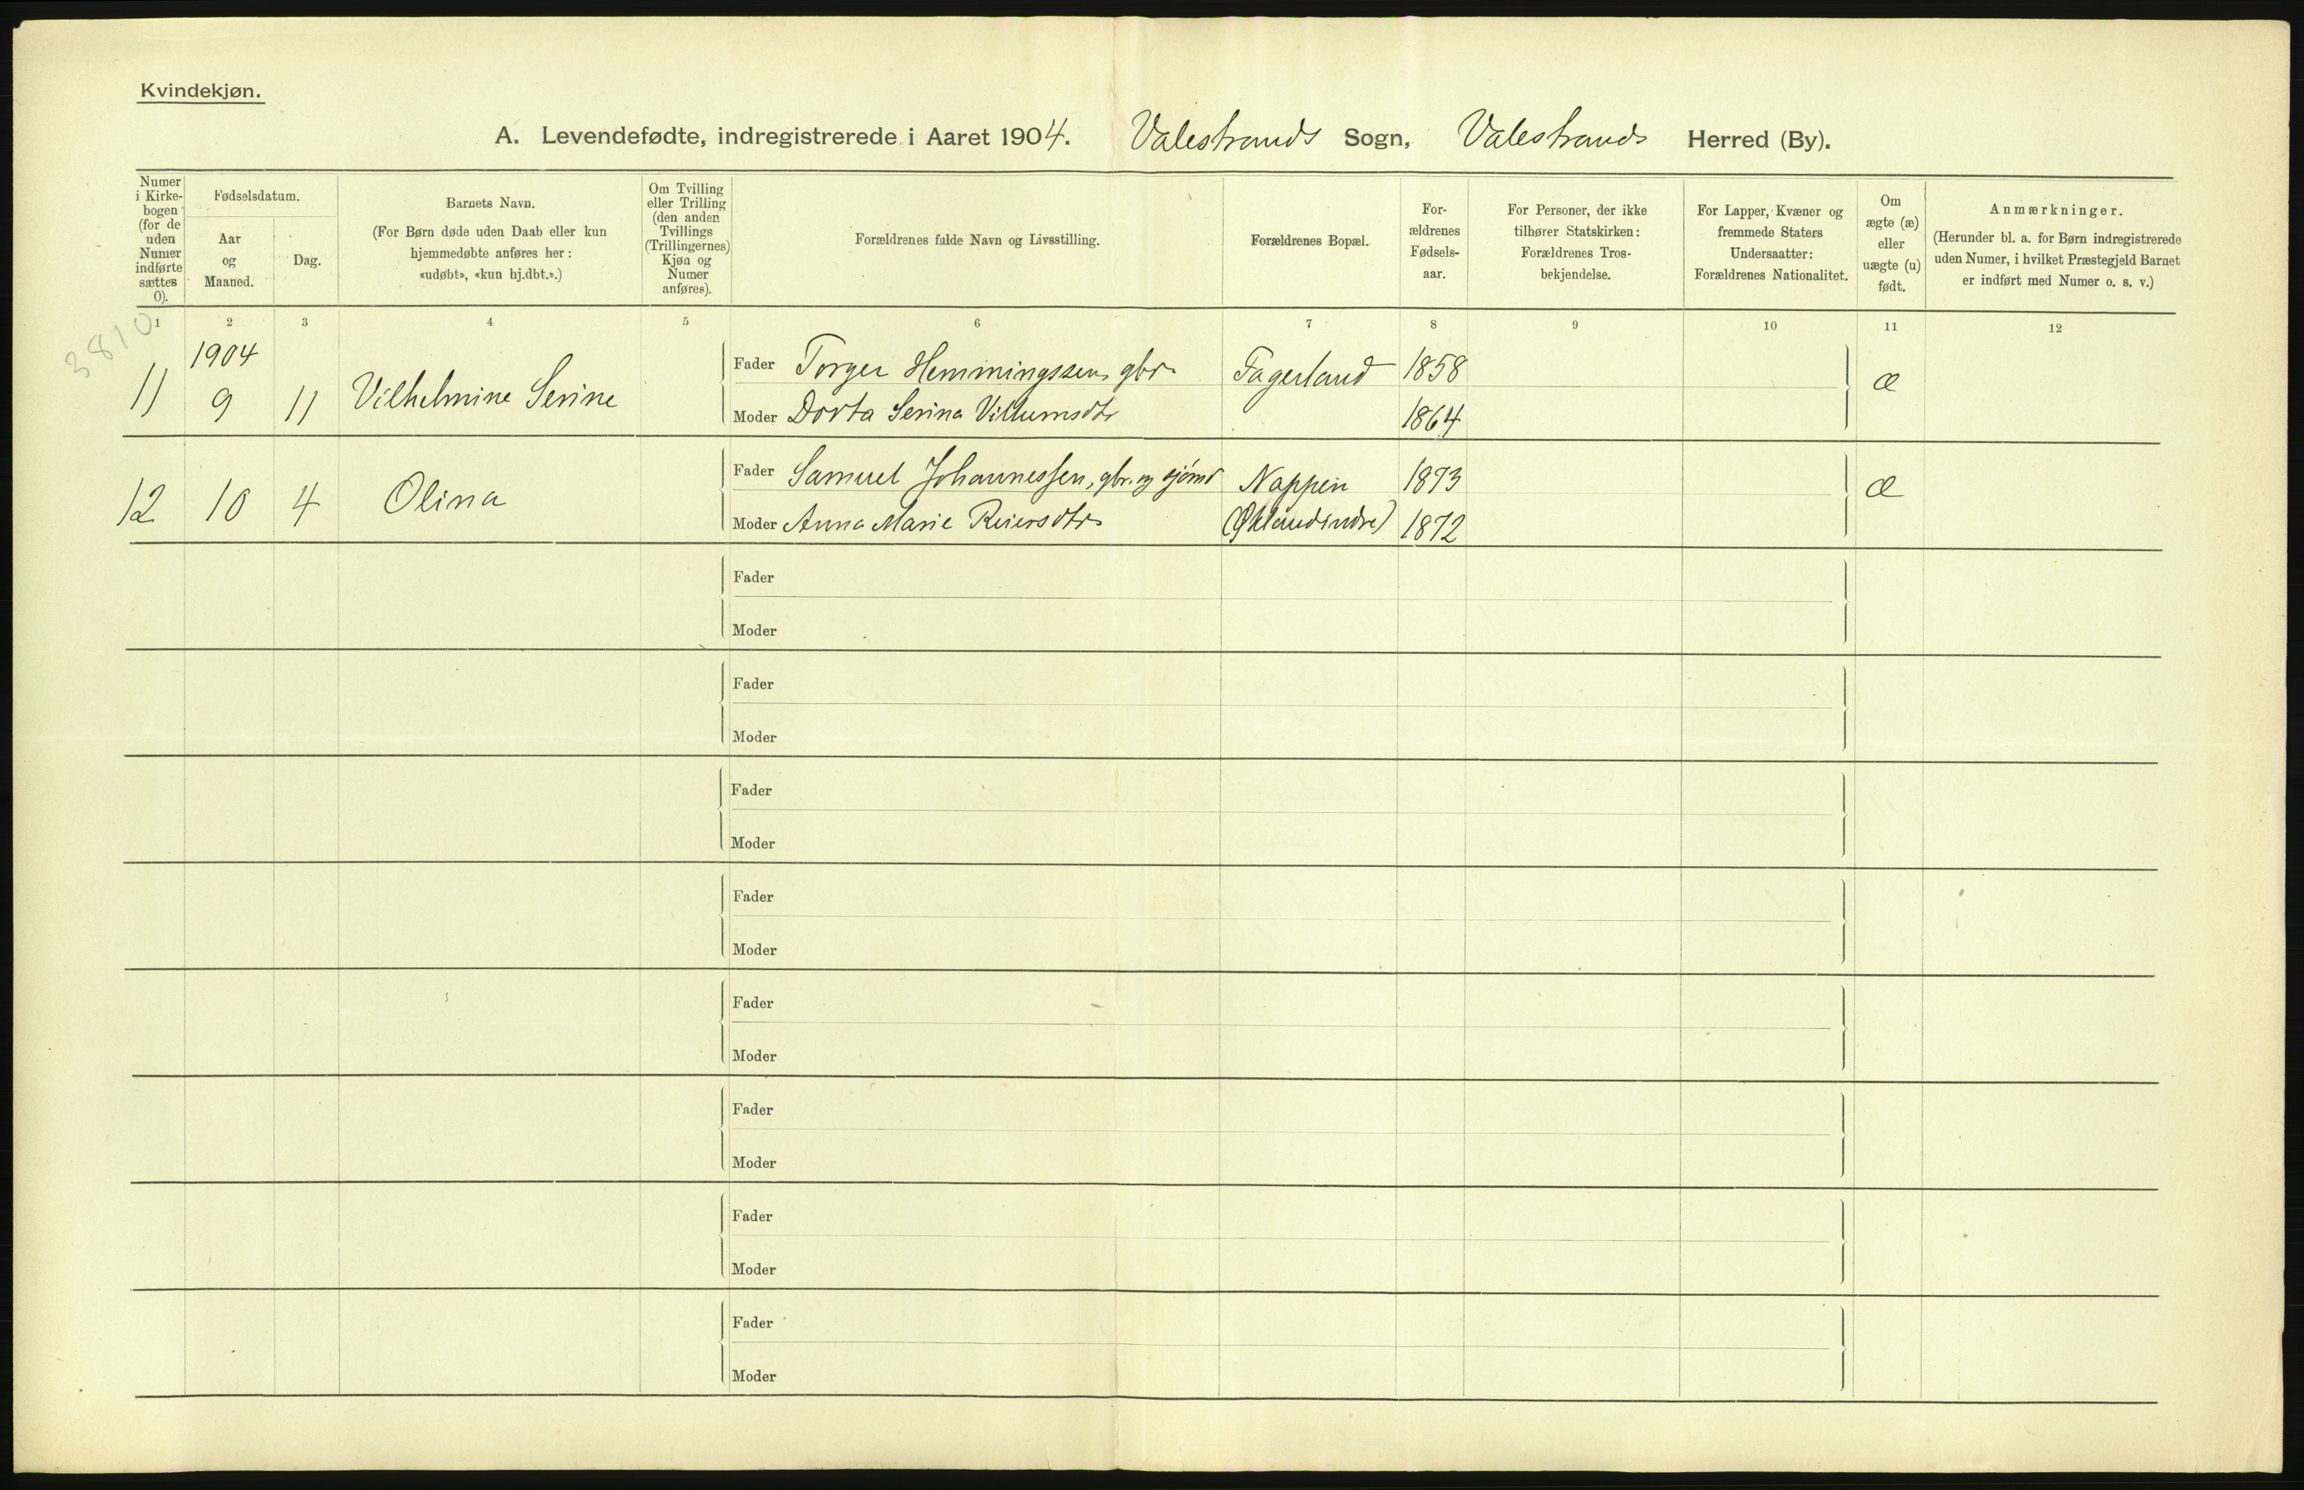 Kvindekjøn.
A. Levendefødte, indregistrerede i Aaret 1904. Valestrands Sogn, Valestrands Herred (By).
Numer i Kirkebogen (for de uden Numer indførte sættes 0).
Fødselsdatum.
Aar og Maaned.
Dag.
Barnets Navn.
(For Børn døde uden Daab eller kun
hjemmedøbte anføres her:
«udøbt», «kun hj.dbt.».)
Om Tvilling
eller Trilling
(den anden
Tvillings
(Trillingernes)
Kjøn og
Numer
anføres).
Forældrenes fulde Navn og Livsstilling.
Forældrenes Bopæl.
For-
ældrenes
Fødsels-
aar.
For Personer, der ikke
tilhører Statskirken:
Forældrenes Tros-
bekjendelse.
For Lapper, Kvæner og
fremmede Staters
Undersaatter:
Forældrenes Nationalitet.
Om
ægte (æ)
eller
uægte (u)
født.
Anmærkninger.
(Herunder bl. a. for Børn indregistrerede
uden Numer, i hvilket Præstegjeld Barnet
er indført med Numer o. s. v.)
1 2 3 4 5 6 7 8 9 10 11 12
3810
1904
11 9 11 Vilhelmine Serine Fader Torger Hemmingssen, gbr. Fagerland 1858 æ
Moder Dorta Serina Villumsdtr 1864
12 10 4 Olina Fader Samuel Johannessen, gbr. og sjömd Nappen 1873 æ
Moder Anna Marie Reiersdtr (Økland indre) 1872
Fader
Moder
Fader
Moder
Fader
Moder
Fader
Moder
Fader
Moder
Fader
Moder
Fader
Moder
Fader
Moder